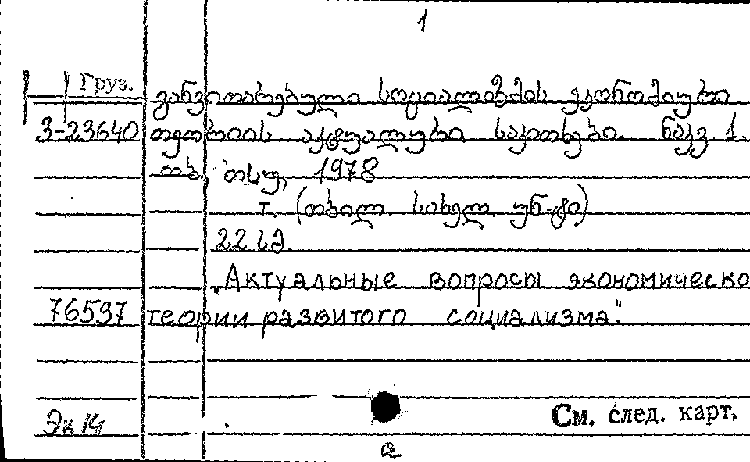 1
Груз.
განვითარებული სოციალიზმის ეკონომიური
3-23640 თეორიის აქტუალური საკითხები. ნაკვ. 1.
თბ., თსუ, 1978
т. (თბილ. სახელ. უნ-ტი)
22 სმ.
„Актуальные вопросы экономическо
76597 теории развитого социализма".
Эк 14
См. след. карт.